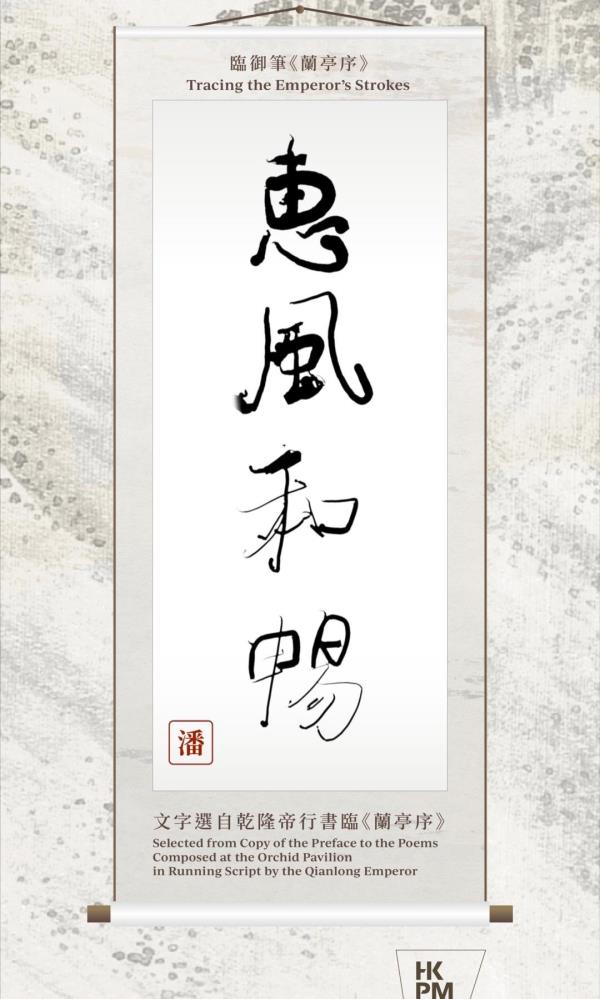 臨御筆《蘭亭序》
Tracing the Emperor's Strokes
惠風和暢
潘
文字選自乾隆帝行書臨《蘭亭序》
Selected from Copy of the Preface to the Poems
Composed at the Orchid Pavilion
in Running Script by the Qianlong Emperor
HK
PM